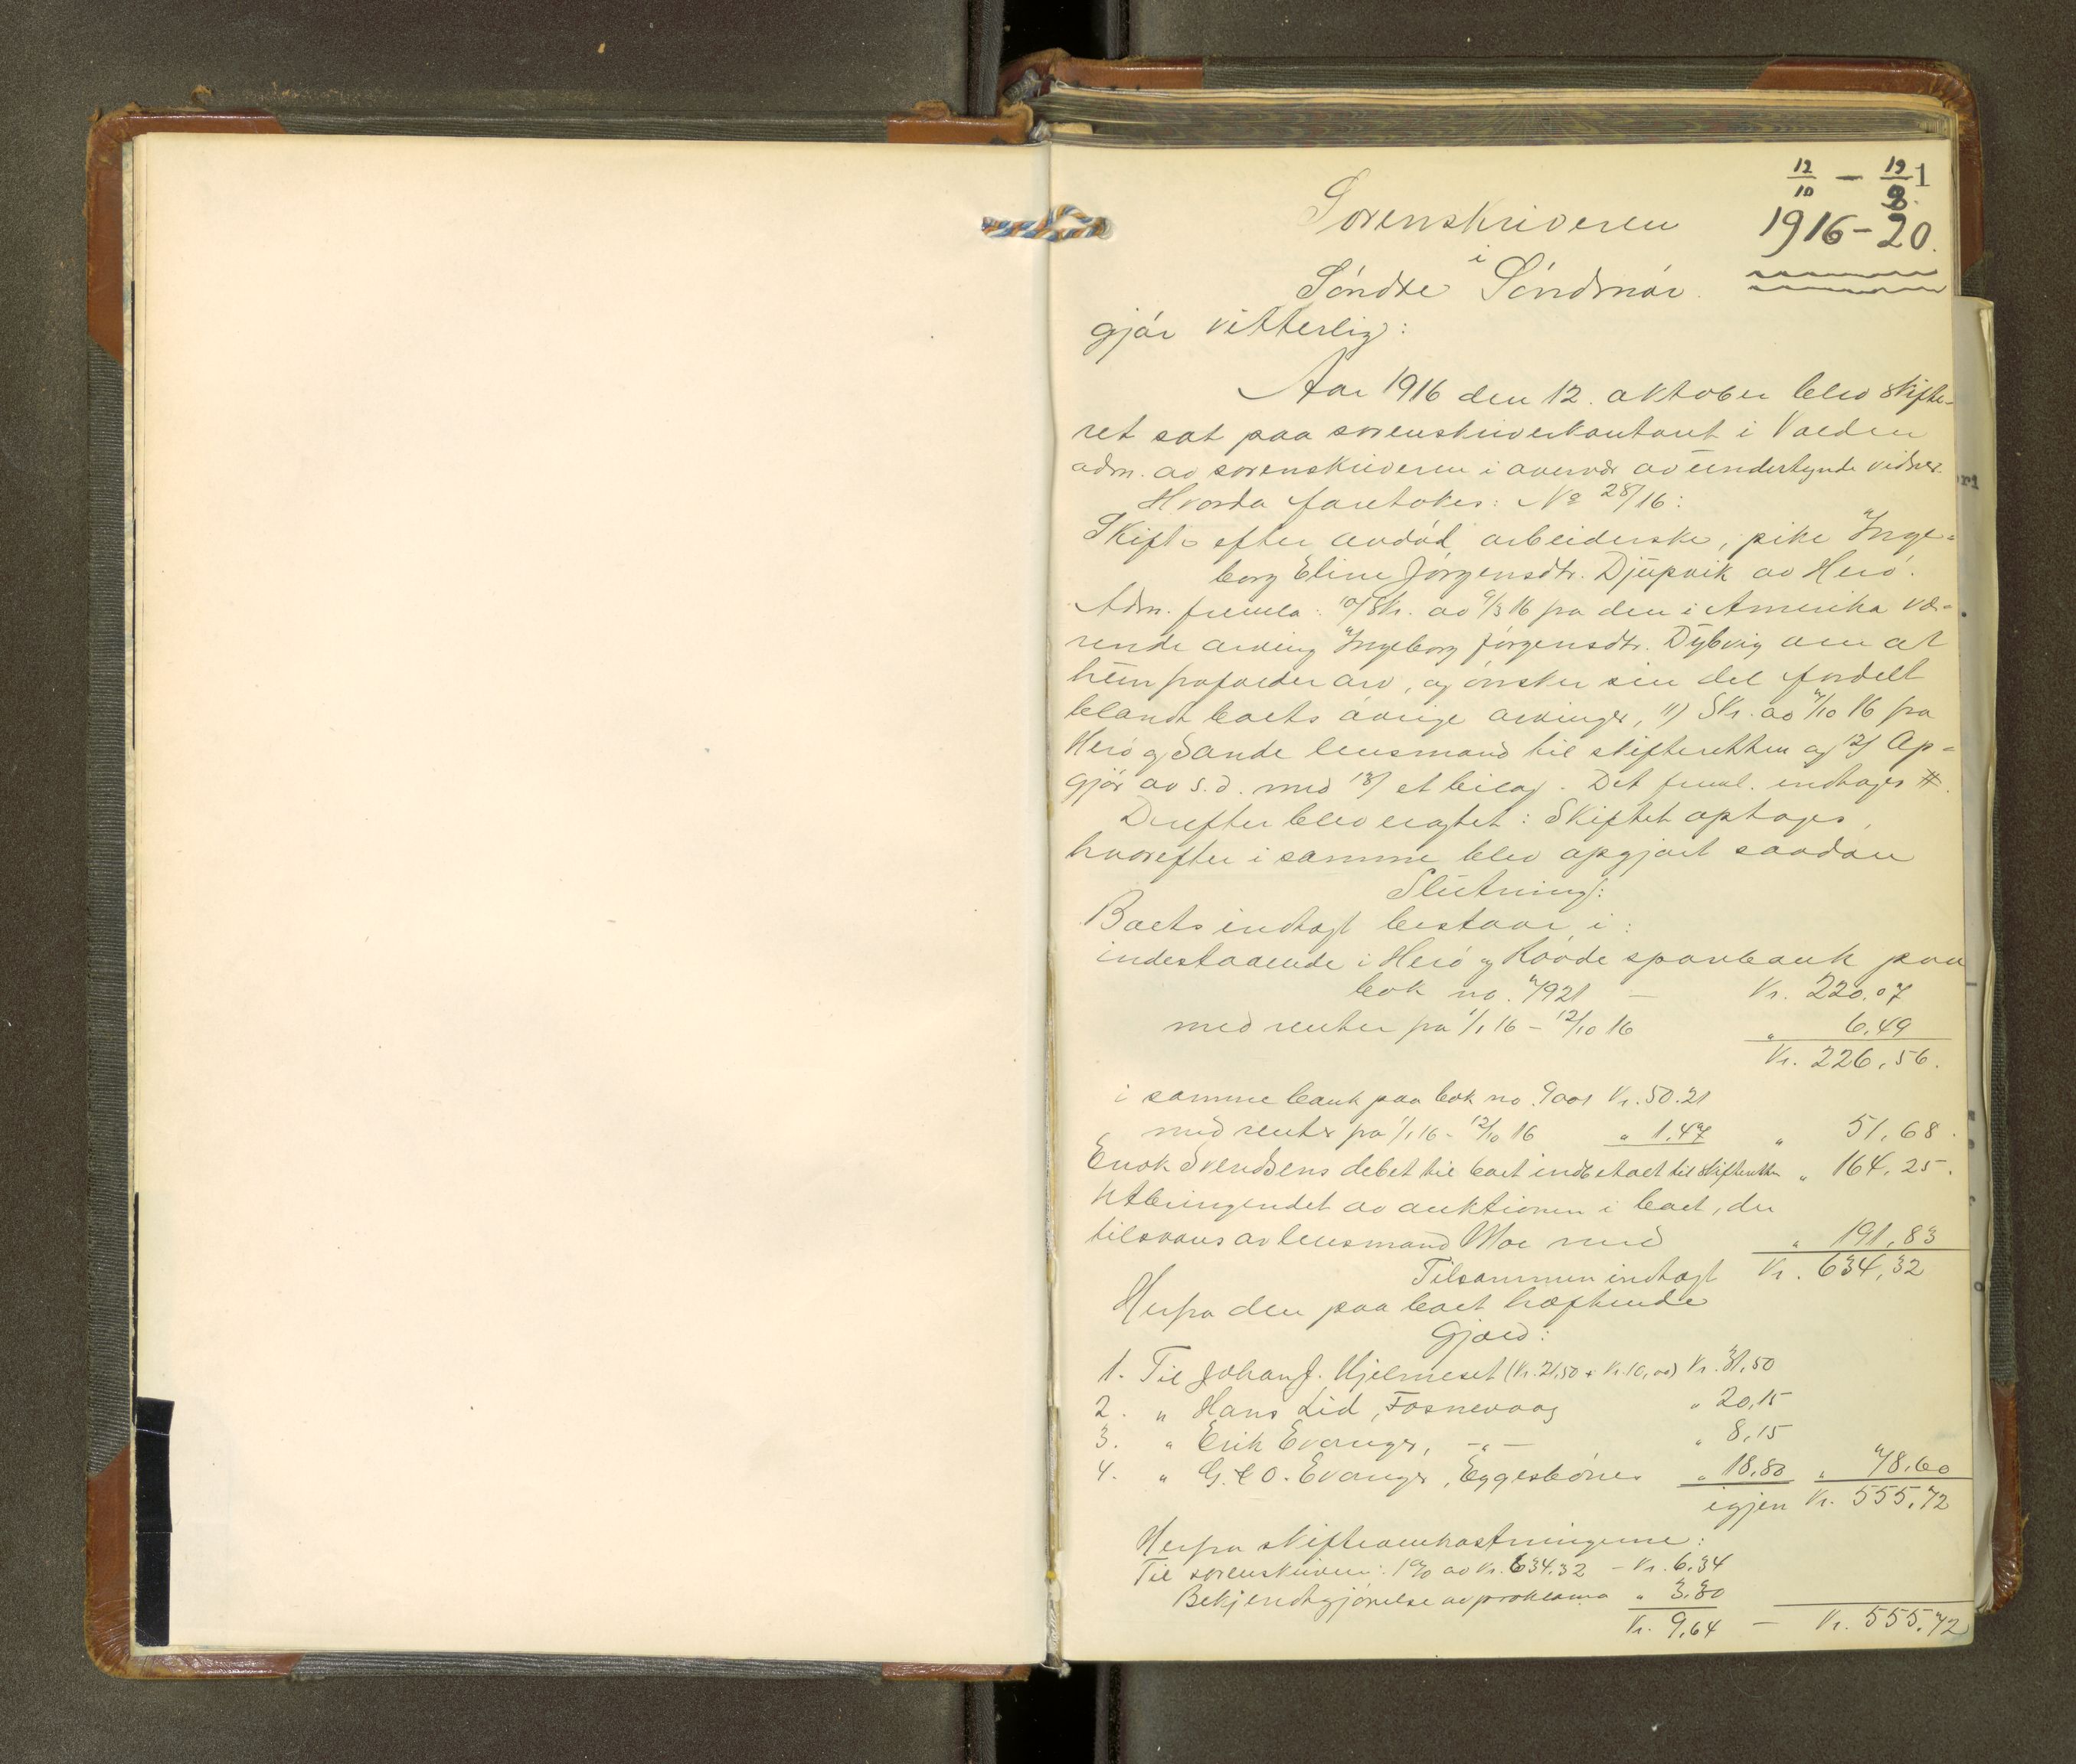 12/10 — 19/8 1
1916-20.
Sorenskriveren
i
Søndre Søndmør.
gjør vitterlig:
Aar 1916 den 12. oktober blev skifte-
ret sat paa sorenskriverkontoret i Volden
adm. av sorenskriveren i overvær av undertegnede vidner.
Hvorda foretokes: No 28/16:
Skifte efter avdød arbeiderske, pike Inge=
borg Eline Jørgensdtr. Djupvik av Herø.
Adm. fremla: 10/ Skr. av 9/3 16 fra den i Amerika væ-
rende arving Ingeborg Jørgensdtr. Dybvig om at
hun frafalder arv, og ønsker sin del fordelt
blandt boets øvrige arvinger, 11/ Skr. av 7/10 16 fra
Herø og Sande lensmand til skifteretten og 12/ Op=
gjør av s.d. med 13/ et bilag. Det freml. indtages #.
Derefter blev eragtet: Skiftet optages,
hvorefter i samme blev opgjort saadan
Slutning:
Boets indtægt bestaar i:
indestaaende i Herø og Røvde sparebank paa
bok no. 7921 — Kr. 220.07
med renter fra 1/1 16 - 12/10 16 " 6.49
Kr. 226,56.
i samme bank paa bok no. 9001 Kr. 50.21
med renter fra 1/1 16 - 12/10 16 " 1.47 " 51,68.
Enok Svendsens debet til boet indbetalt til skifteretten " 164,25.
Utbringendet av auktionen i boet, der
tilsvares av lensmand Moe med " 191,83
Tilsammen indtægt Kr. 634,32
Herfra den paa boet hæftende
Gjæld:
1. Til Johan J. Hjelmeset (Kr. 21,50 + Kr. 10,00) Kr. 31,50
2. " Hans Lid, Fosnevaag " 20,15
3. " Erik Evanger, -"- " 8,15
4. " G. & O. Evanger, Eggesbønes " 18,80 " 78,60
igjen Kr. 555,72
Herfra skifteomkostningerne:
Til sorenskriveren: 1% av Kr. 634.32 - Kr. 6.34
Bekjendtgjørelse av proklama " 3.30
Kr. 9,64 — Kr. 555,72